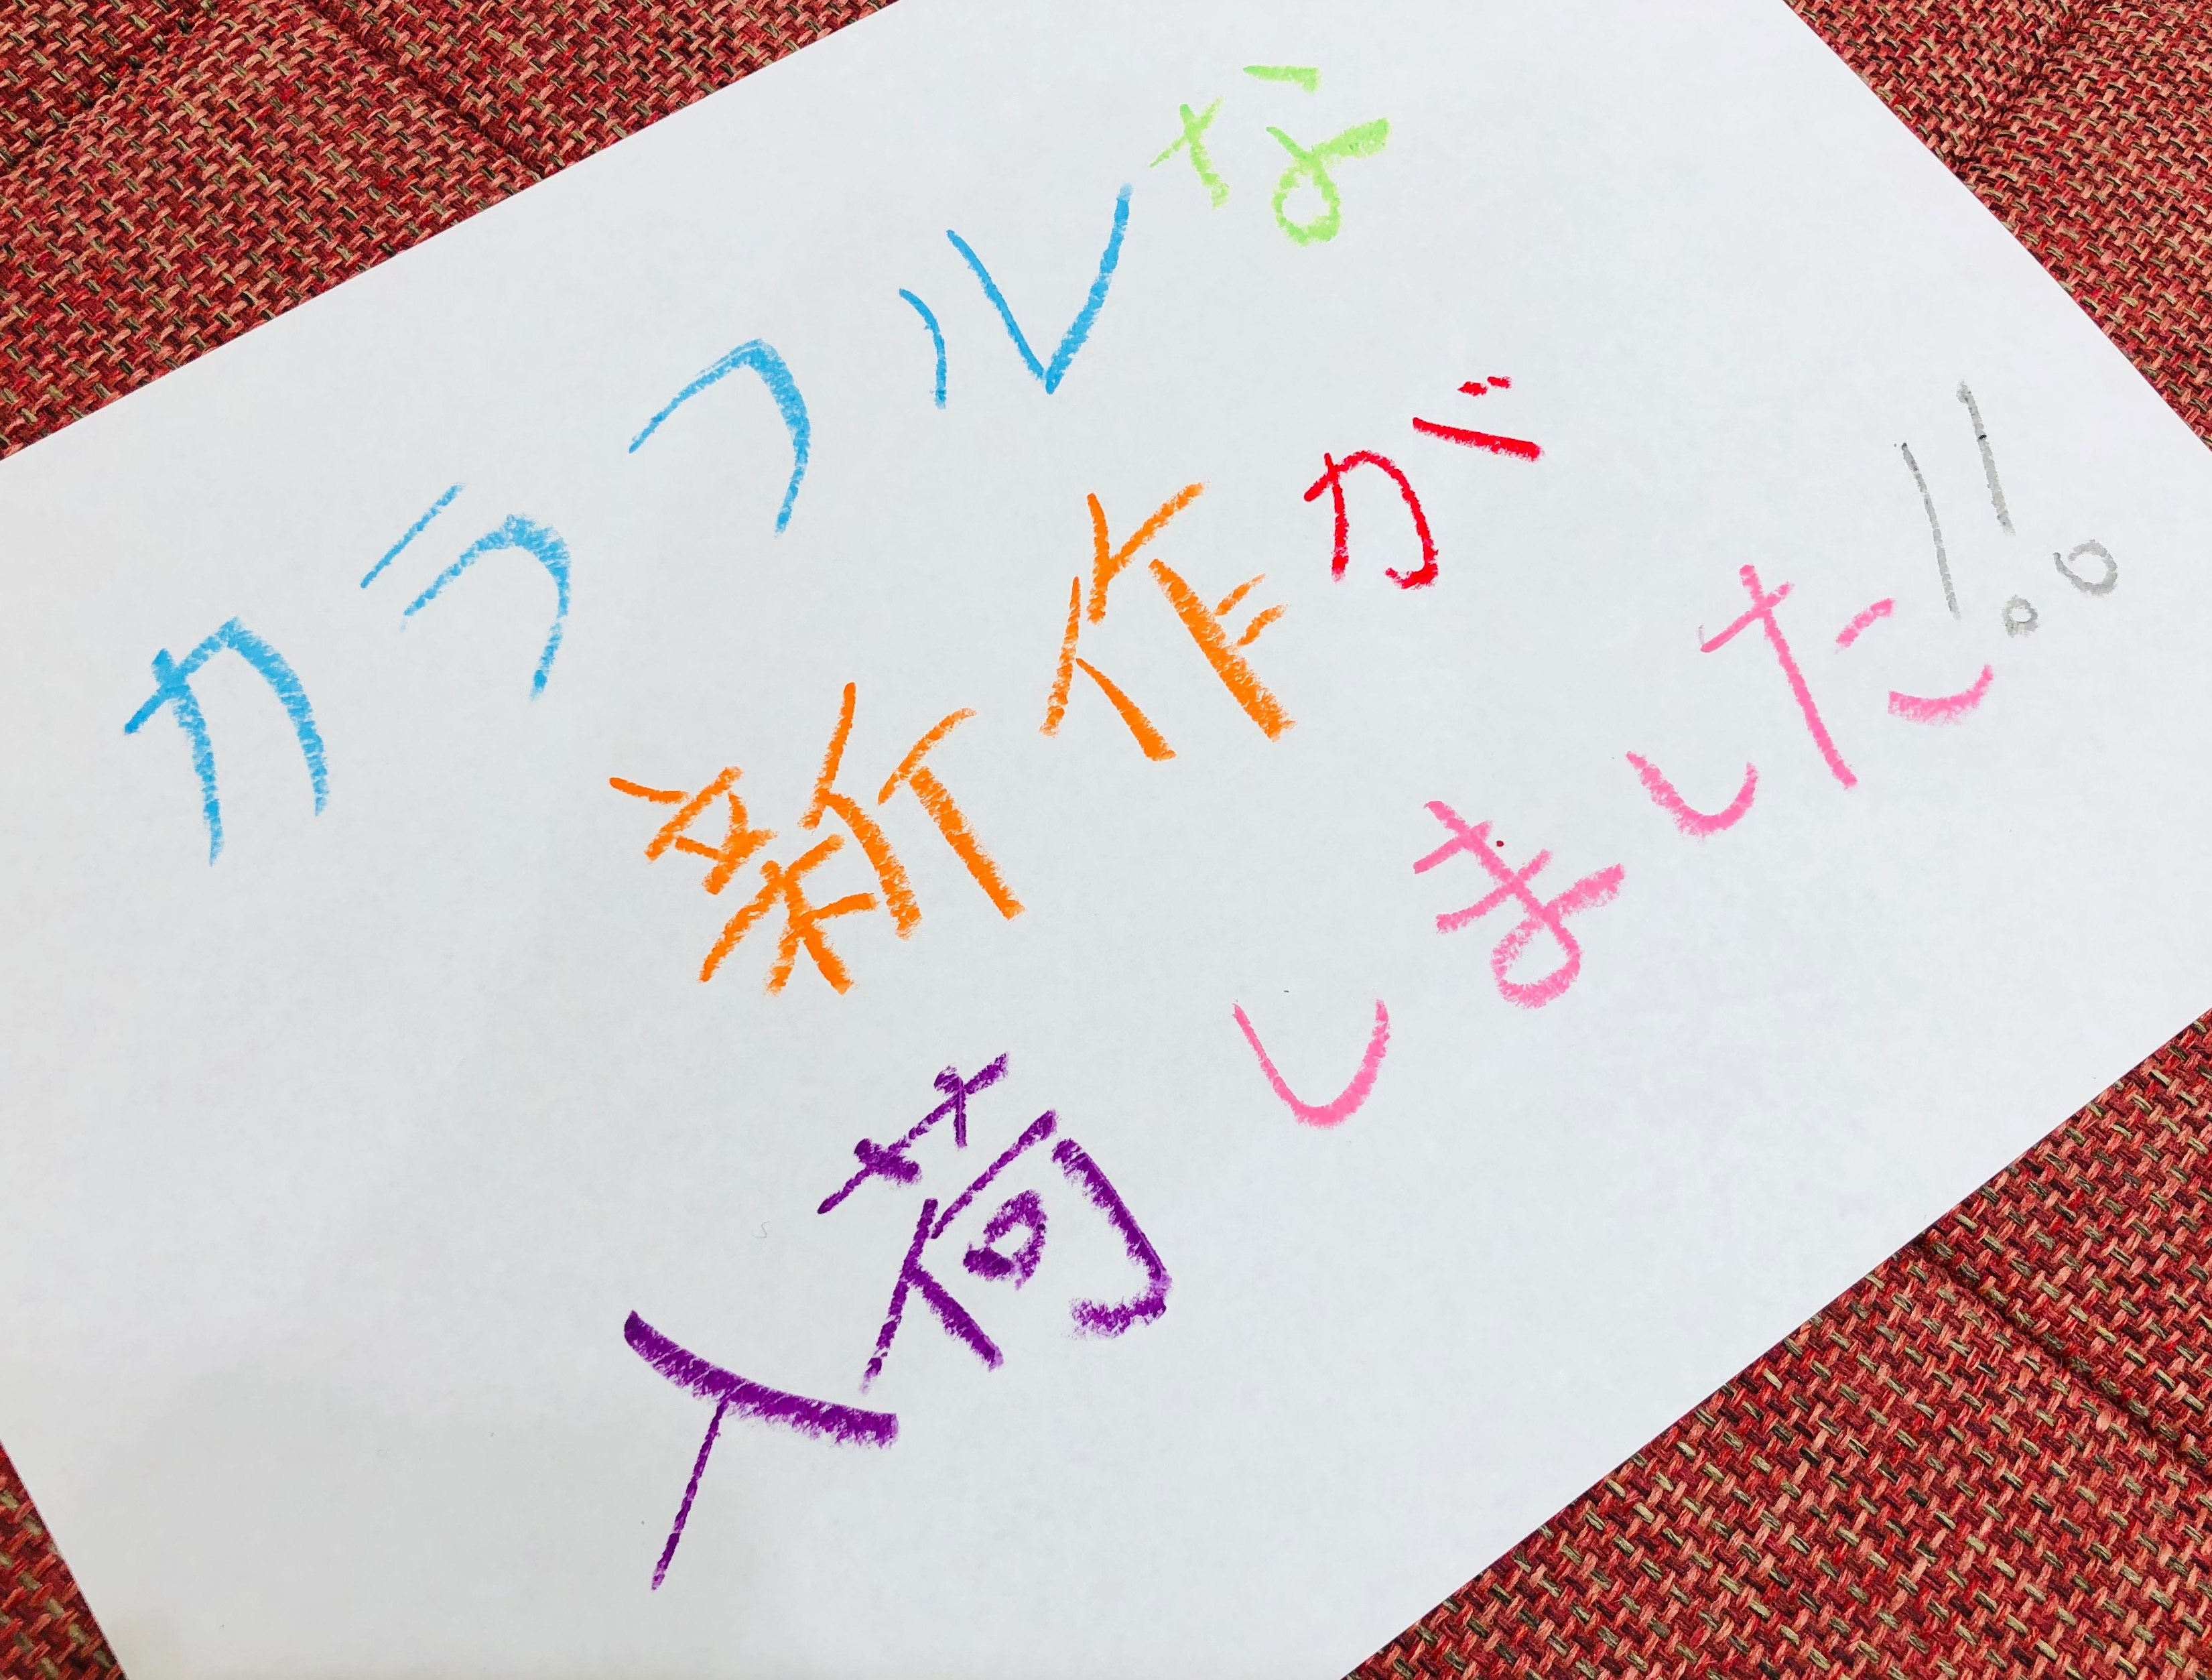 カラフルな
新作が
入荷しました!!